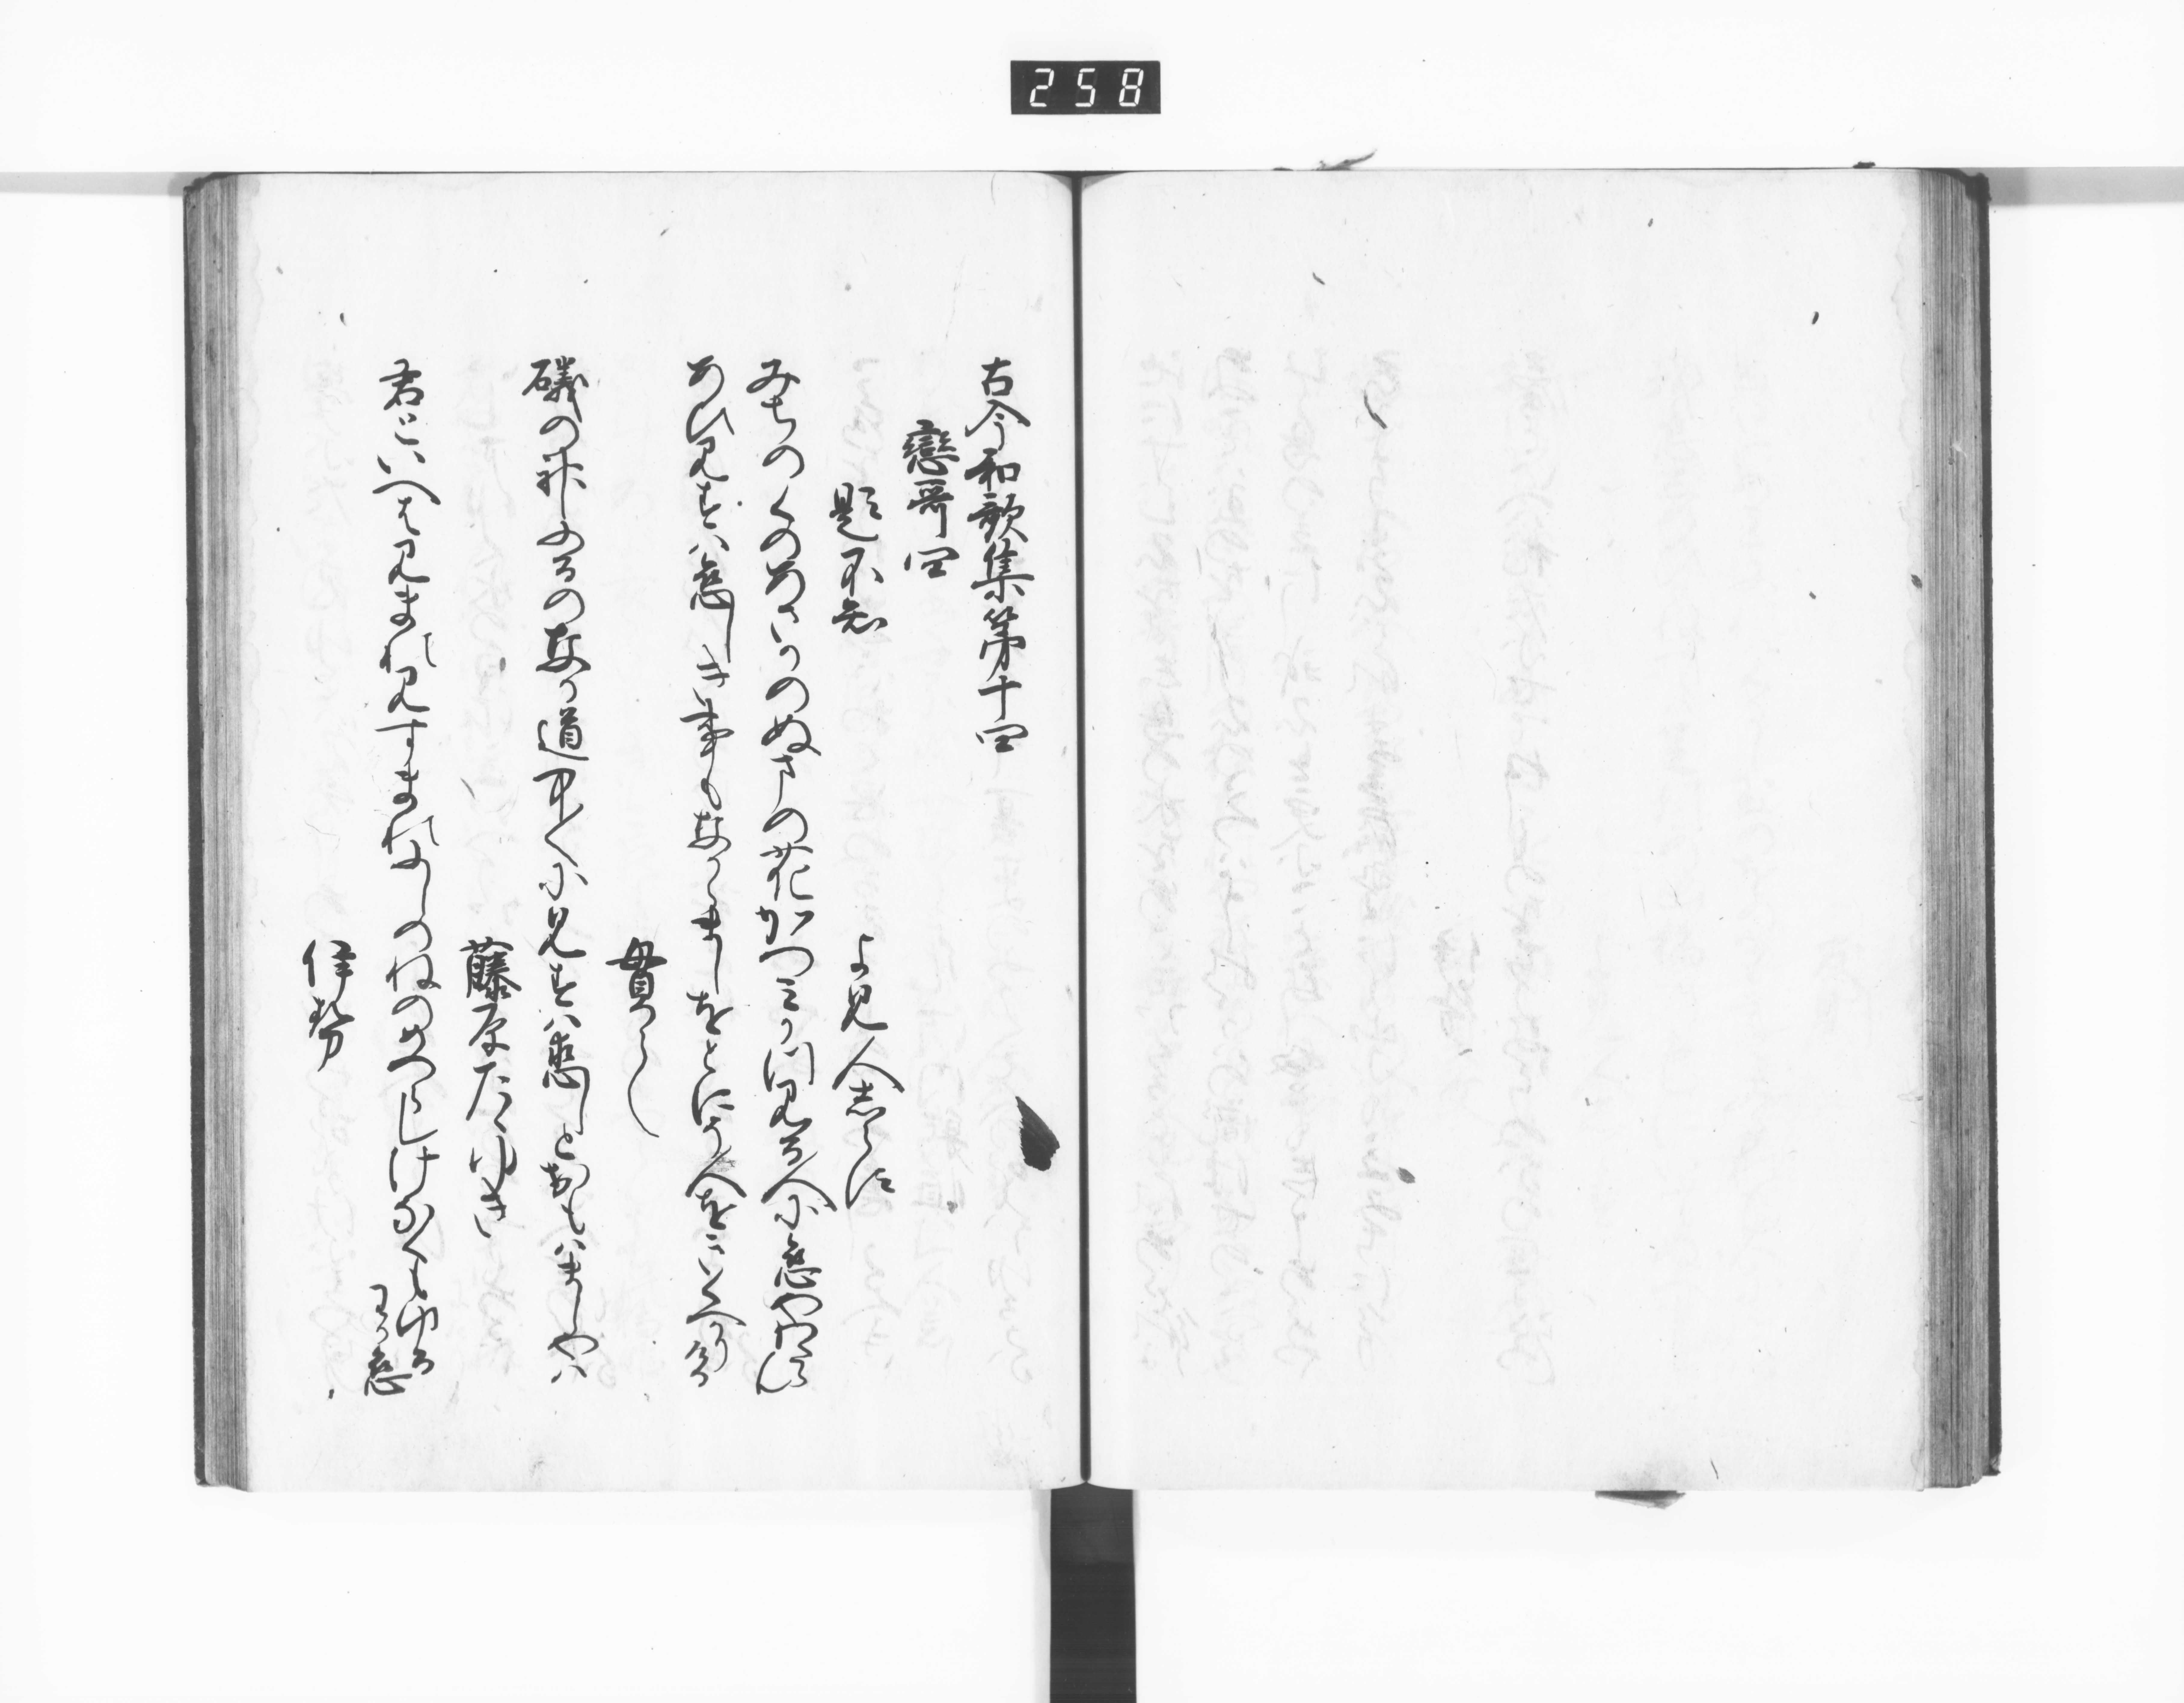 258
古今和歌集第十四
戀哥四
題不知
よ見人志らす
みちのくのあさかのぬまの花かつミかつ見る人に恋やわたらん
あひ見すは恋しき事もなからましをとにそ人をきくへかりける
貫之
礒の神ふるのなか道中〱に見すは恋しとおもはましやは
藤原たゝゆき
君といへは見まれ見すまれふしのねのめつらしけなくもゆるわか恋
伊勢